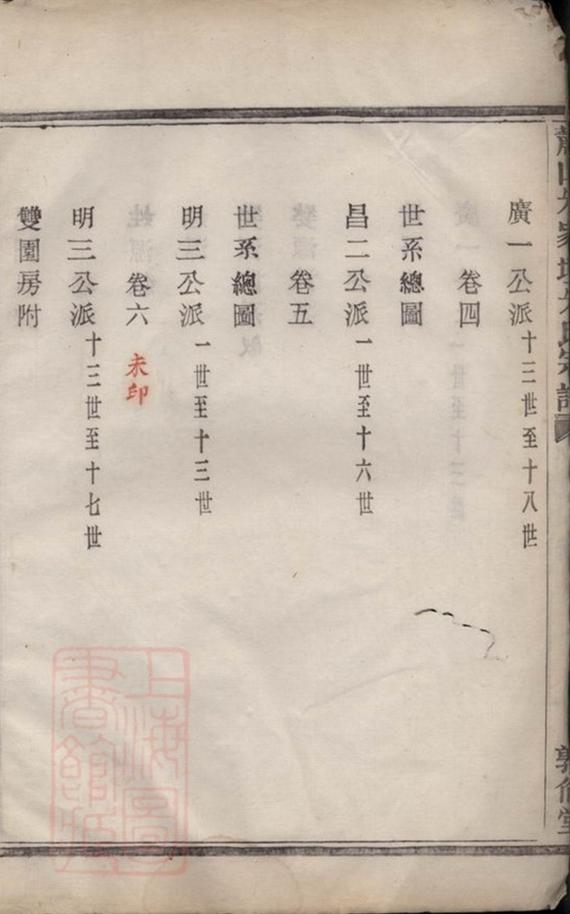 廣一公派十三世至十八世
卷四
世系總圖
昌二公派一世至十六世
卷五
世系總圖
明三公派一世至十三世
卷六未印
明三公派十三世至十七世
雙園房附
上海圖
書館藏